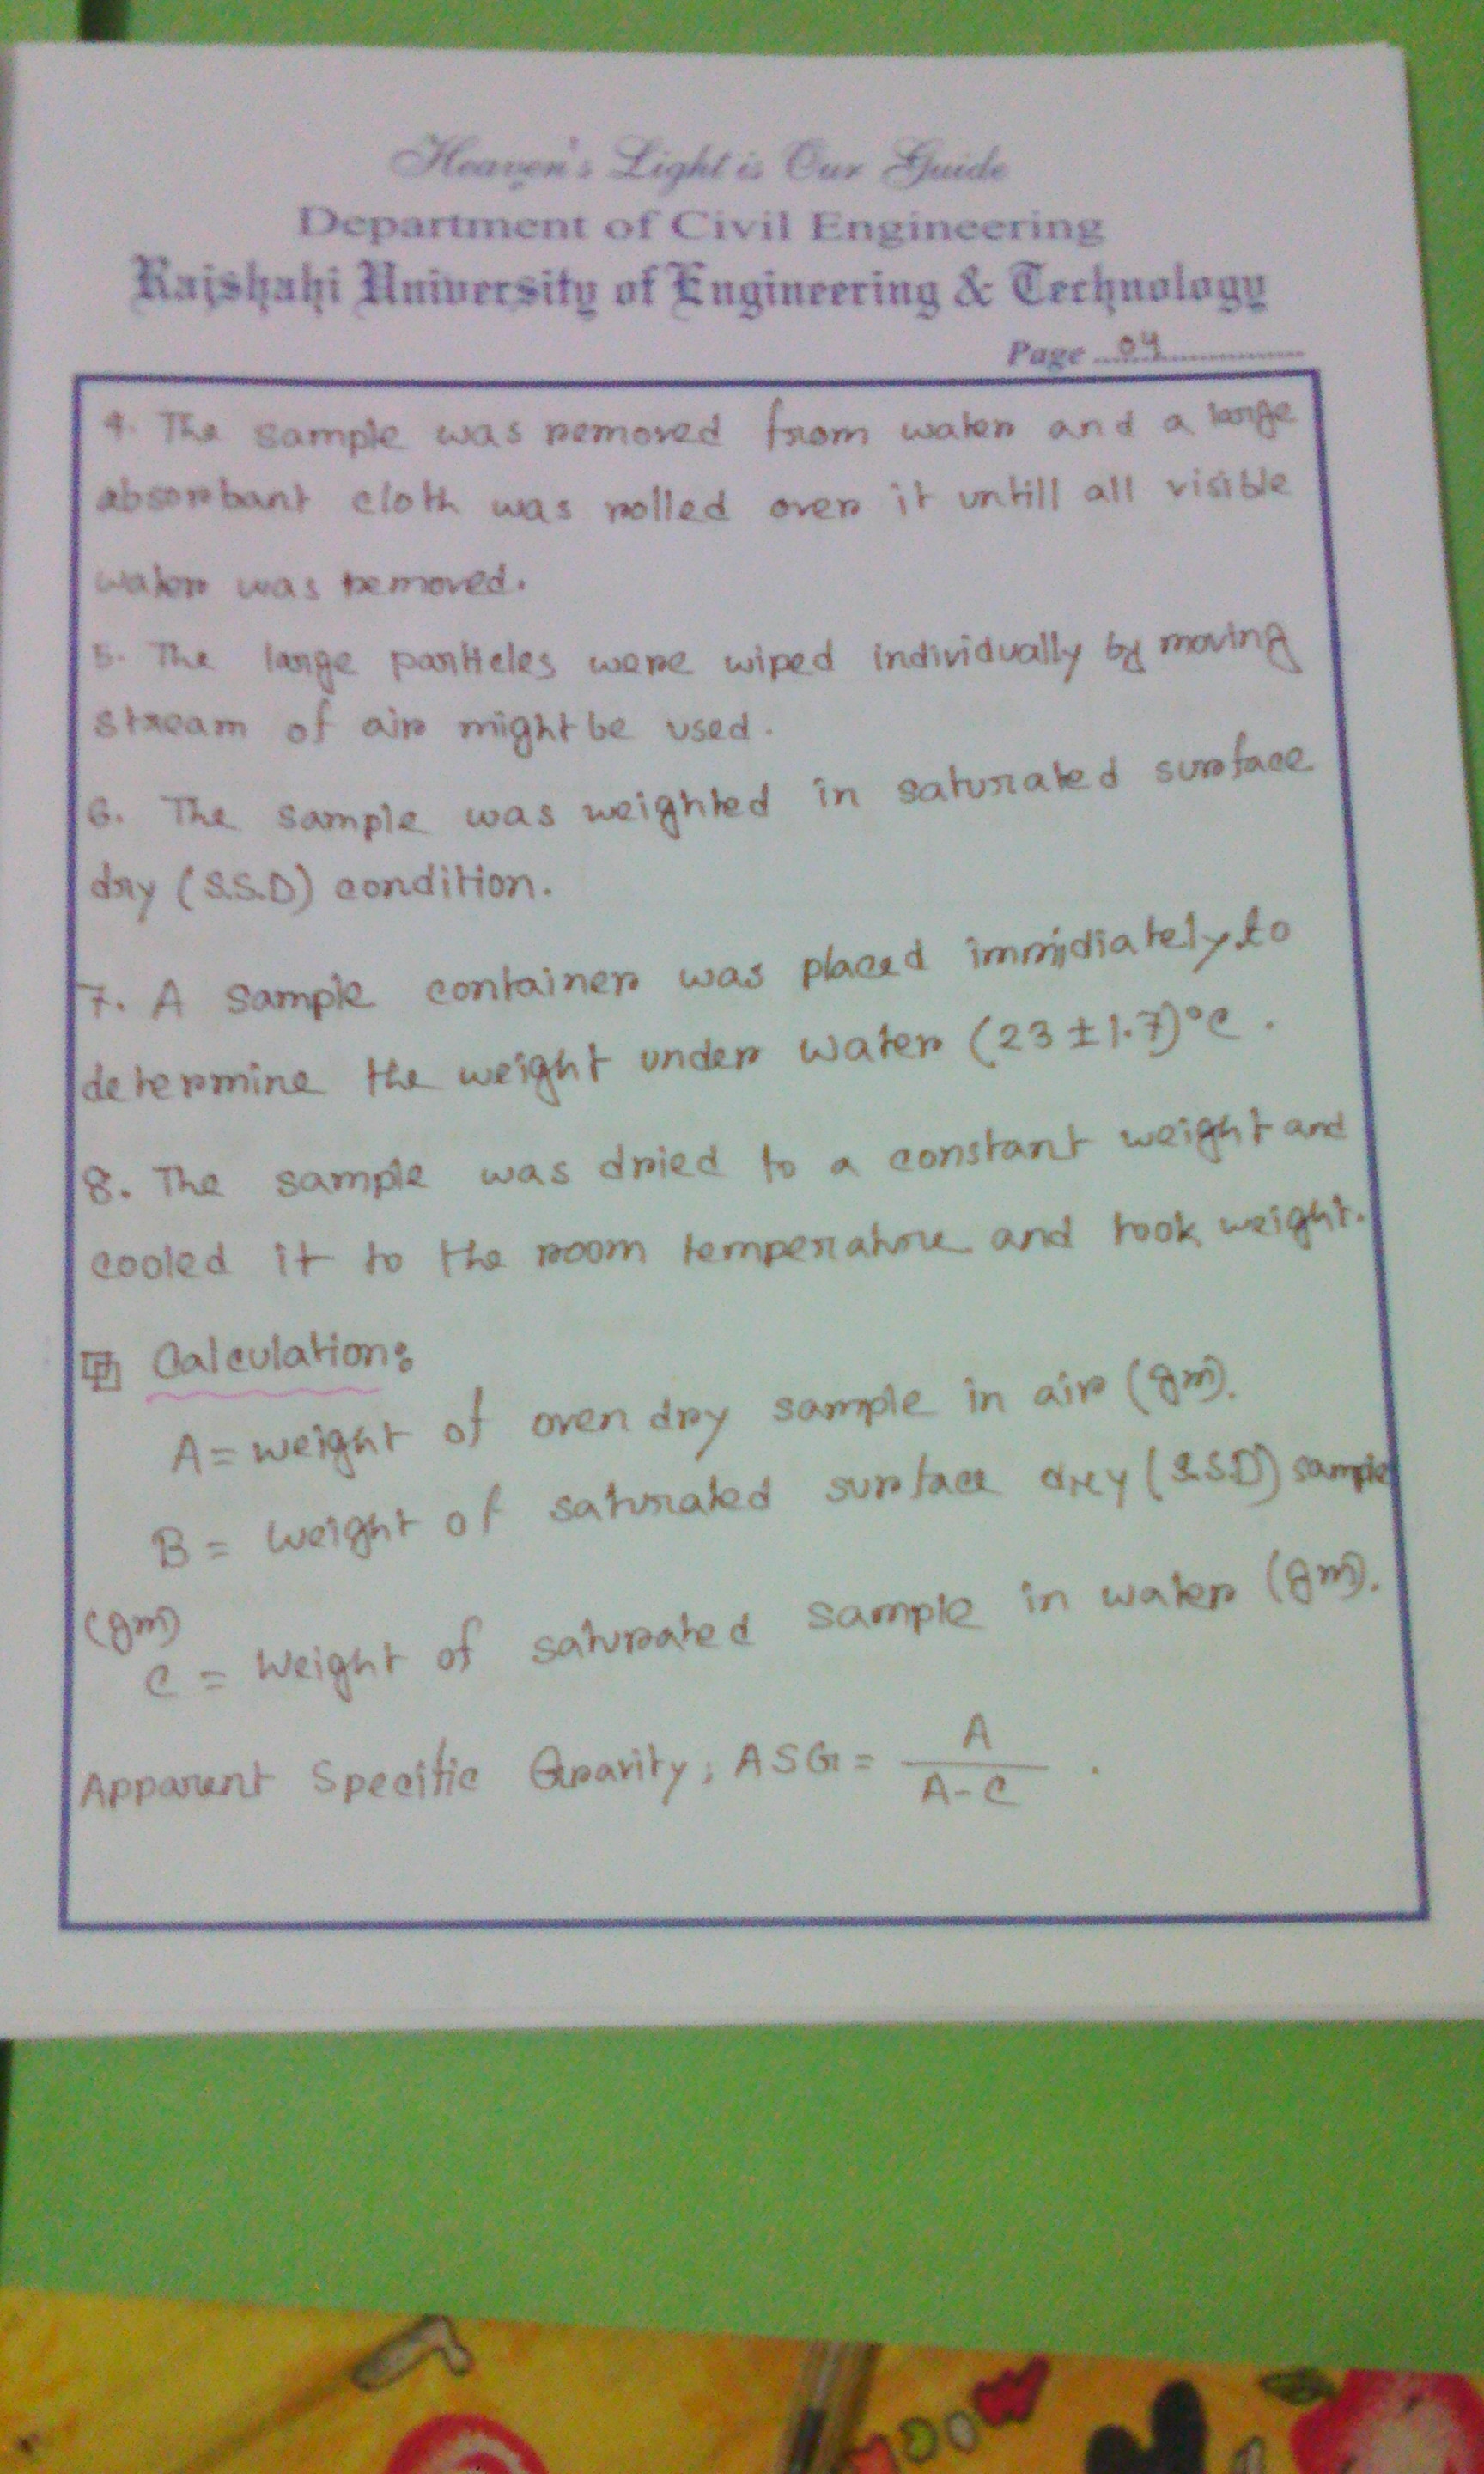 Heaven's Light is Our Guide
Department of Civil Engineering
Rajshahi University of Engineering & Technology
Page 04
4. The sample was removed from water and a large
absorbant cloth was rolled over it untill all visible
water was removed.
5. The large particles were wiped individually by moving
stream of air might be used.
6. The sample was weighted in saturated surface
dry (S.S.D) condition.
7. A sample container was placed immidiately to
determine the weight under water (23 ± 1.7)°C.
8. The sample was dried to a constant weight and
cooled it to the room temperature and took weight.
Calculation:
A = weight of oven dry sample in air (gm).
B = Weight of saturated surface dry (S.S.D) sample
(gm)
C = Weight of saturated sample in water (gm).
Apparent Specific Gravity, ASG = A / A-C .